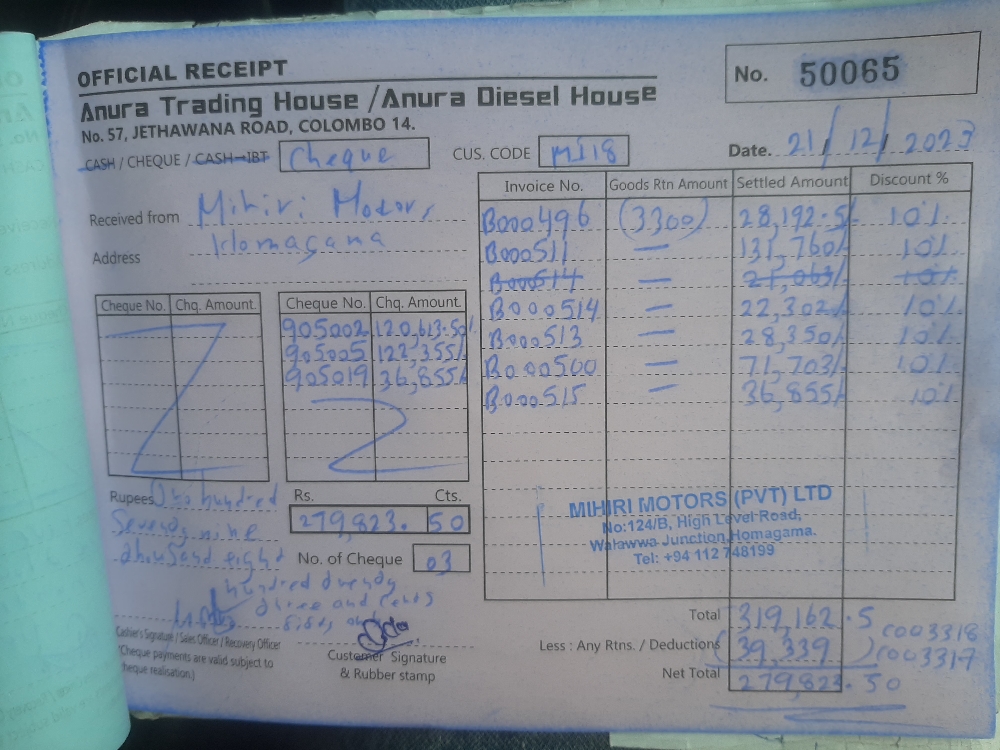 OFFICIAL RECEIPT
No. 50065
Anura Trading House /Anura Diesel House
No. 57, JETHAWANA ROAD, COLOMBO 14.
CASH / CHEQUE / CASH-IBT Cheque
CUS. CODE MI18
Date. 21/12/2023
Received from Mihiri Motors,
Address Homagama
Invoice No. Goods Rtn Amount Settled Amount Discount %
B000496 (3300) 28,192.5/ 10%
B000511 — 131,760/ 10%
B000514 — 21,063/ 10%
B000514 — 22,302/ 10%
B000513 — 28,350/ 10%
B000500 — 71,703/ 10%
B000515 36,855/ 10%
Cheque No. Chq. Amount
Cheque No. Chq. Amount
905002 120,613.50/
905005 122,355/
905019 36,855/
Rupees Two hundred
Seventy nine
thousand eight
hundred twenty
three and cents
fifty
Rs. Cts.
279,823. 50
No. of Cheque 03
Cashier's Signature / Sales Officer / Recovery Officer
*Cheque payments are valid subject to
cheque realisation.)
Customer Signature
& Rubber stamp
MIHIRI MOTORS (PVT) LTD
No:124/B, High Level Road,
Walawwa Junction,Homagama.
Tel: +94 112 748199
Total 319,162.5
Less : Any Rtns. / Deductions (39,339) C003318
C003317
Net Total 279,823.50